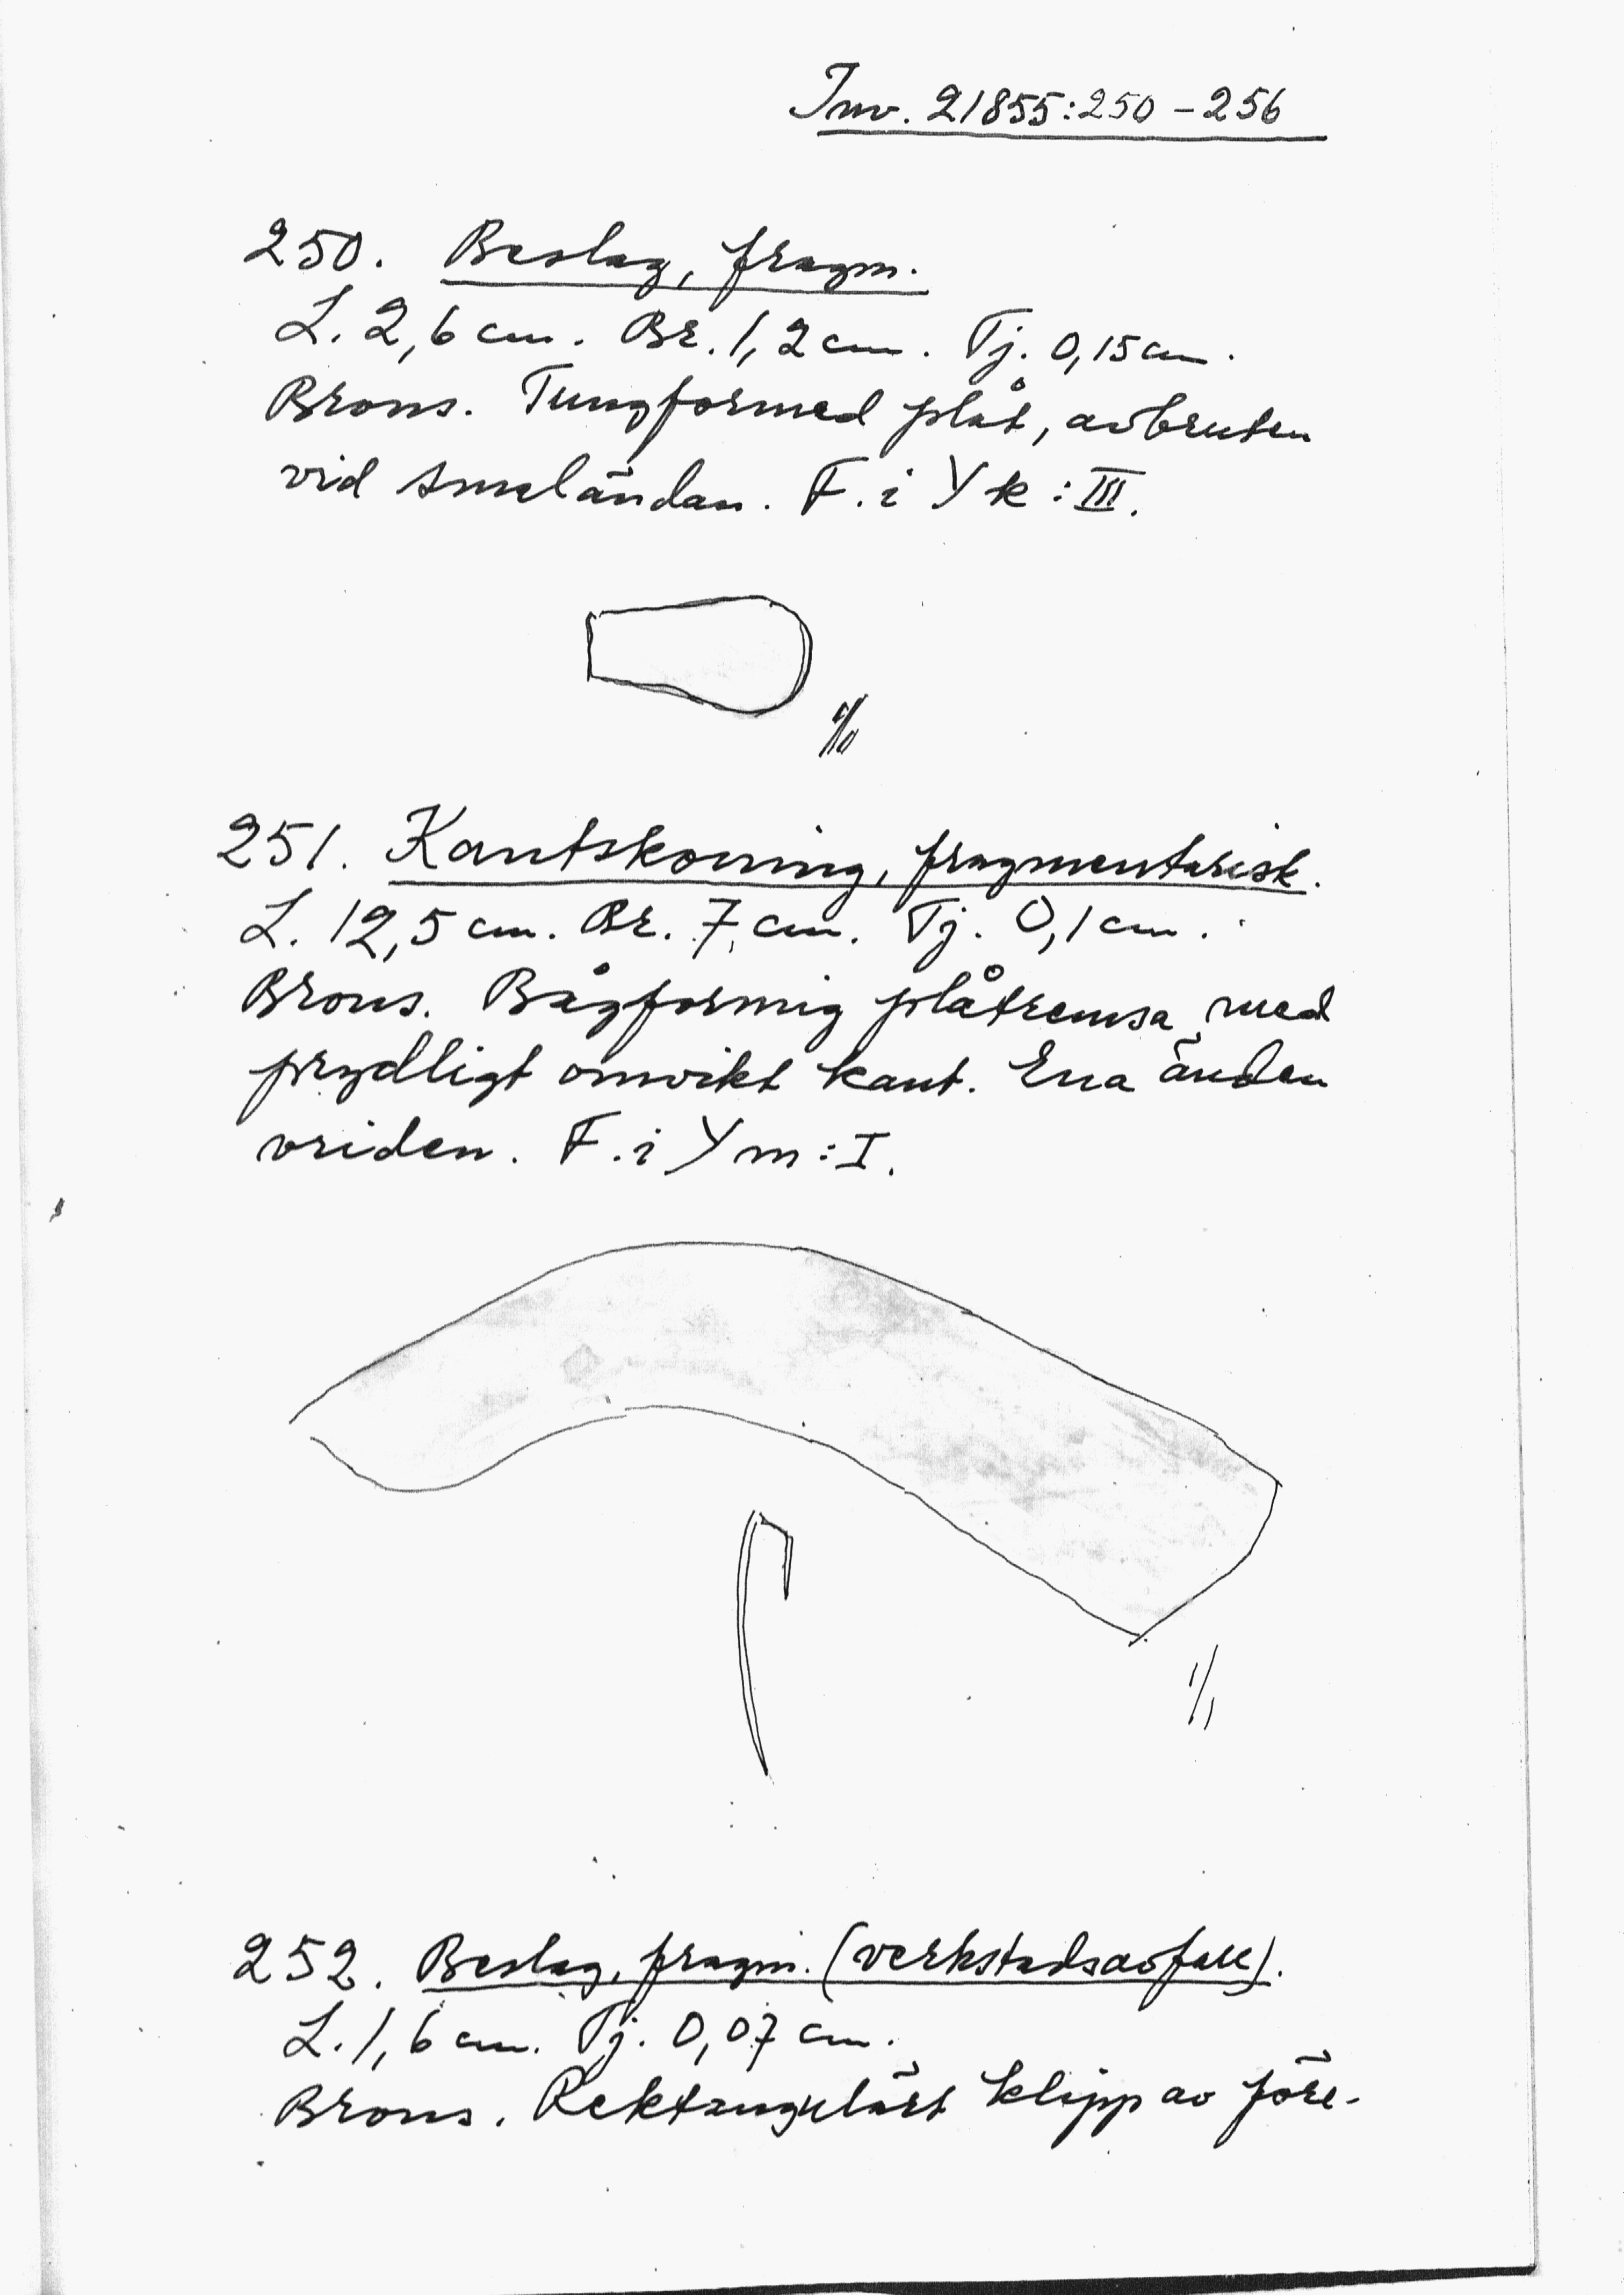 Inv. 21855:250-256
250. Beslag, fragm.
L. 2,6 cm. Br. 1,2 cm. Tj. 0,15 cm.
Brons. Tungformed plåt, avbruten
vid smaländan. F. i Yk:III.
1/1
251. Kantskoning, fragmentarisk.
L. 12,5 cm. Br. 7 cm. Tj. 0,1 cm.
Brons. Bågformig plåtremsa med
prydligt omvikt kant. Ena änden
vriden. F. i Ym:I.
1/1
252. Beslag, fragm. (verkstadsavfall).
L. 1,6 cm. Tj. 0,07 cm.
Brons. Rektangulärt klipp av före-